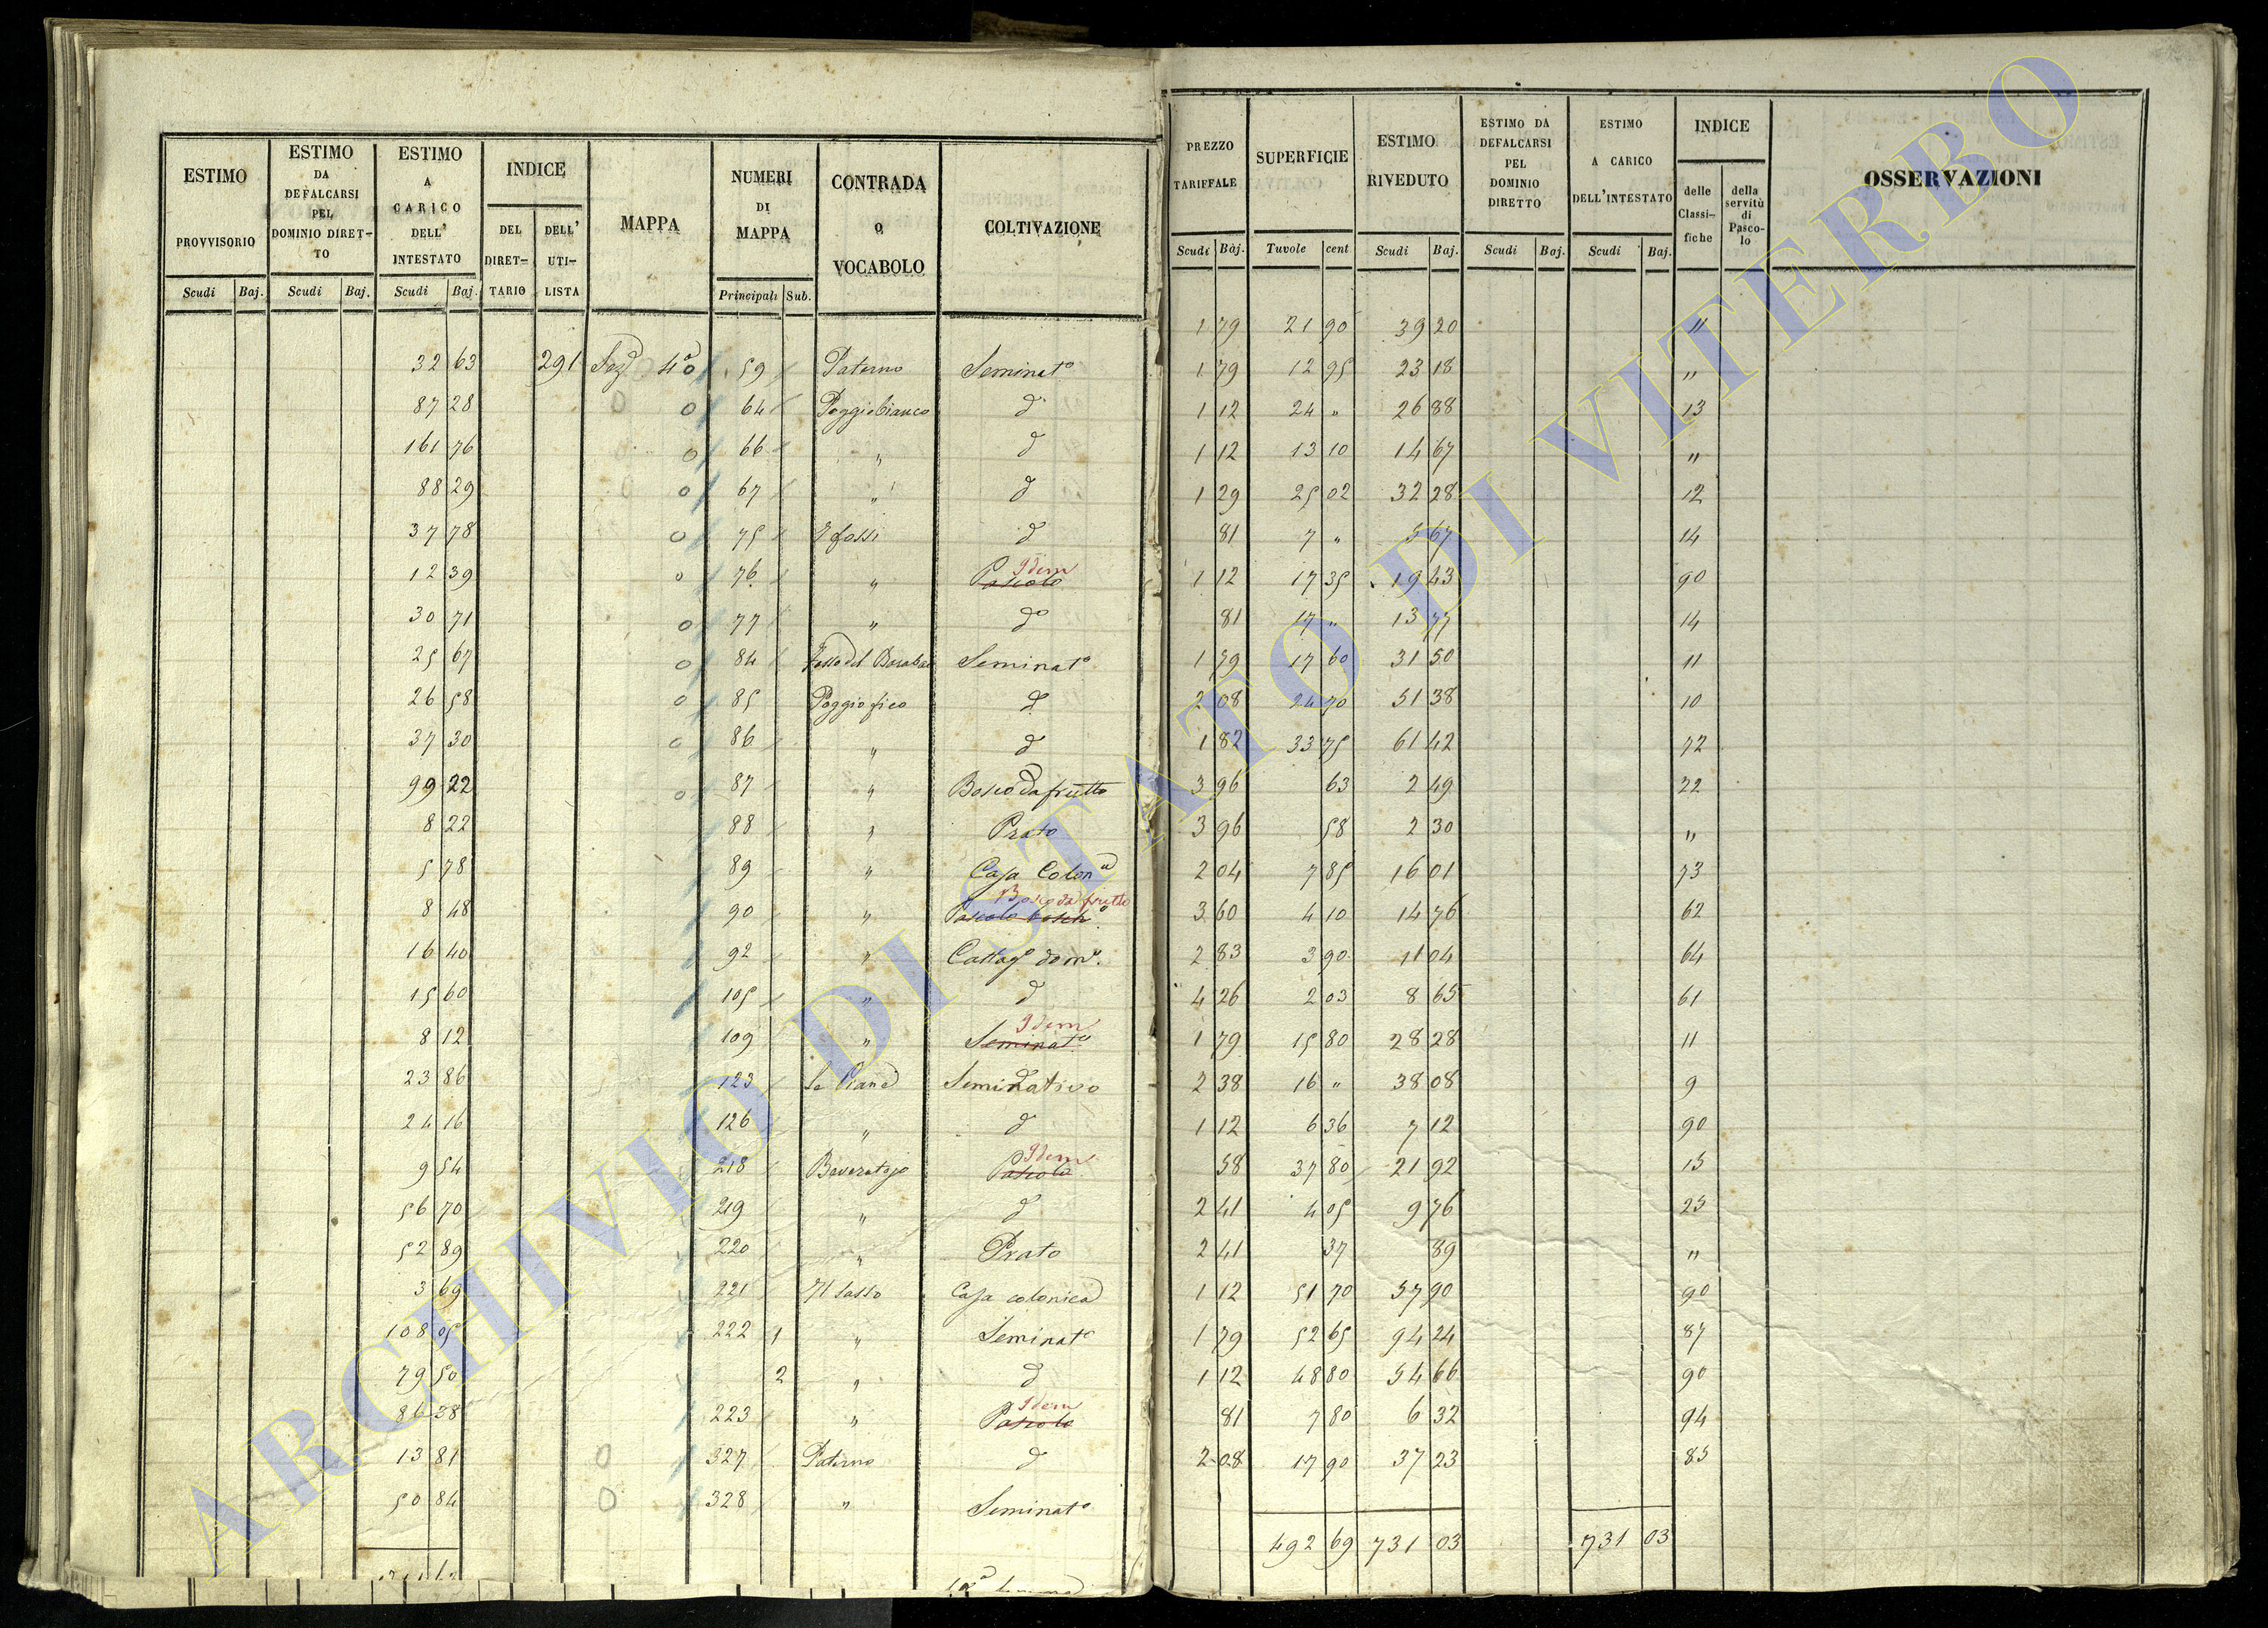 ESTIMO PROVVISORIO
ESTIMO DA DEFALCARSI PEL DOMINIO DIRET-TO
ESTIMO A CARICO DELL' INTESTATO
INDICE
DEL DIRET-TARIO
DELL' UTI-LISTA
MAPPA
NUMERI DI MAPPA
CONTRADA O VOCABOLO
COLTIVAZIONE
Scudi Baj. Scudi Baj. Scudi Baj. Principali Sub.
32 63 291 Sez 4a 59 Paterno Seminato
87 28 64 Poggiobianco d
161 76 66 " d
88 29 67 " d
37 78 75 I fossi d
12 39 76 " Pascolo Idem
30 71 77 " do
25 67 84 Seminato
26 58 85 Poggio fico d
37 30 86 " d
99 22 87 " Bosco da frutto
8 22 88 " Prato
5 78 89 " Casa Colona
8 48 90 " Pascolo bosch Bosco da frutto
16 40 92 " Castag dome
15 60 105 " d
8 12 109 " Seminato Idem
23 86 123 Le Piane Seminativo
24 16 126 " d
9 54 218 Beveratojo Pascolo Idem
56 70 219 " d
52 89 220 " Prato
3 69 221 Il Sasso Casa colonica
108 05 222 1 " Seminato
79 50 2 " d
86 38 223 " Pascolo Idem
13 81 327 Paterno d
50 84 328 " Seminato
PREZZO TARIFFALE
SUPERFICIE
ESTIMO RIVEDUTO
ESTIMO DA DEFALCARSI PEL DOMINIO DIRETTO
ESTIMO A CARICO DELL'INTESTATO
INDICE
delle Classi-fiche
della servitù di Pasco-lo
OSSERVAZIONI
Scudi Baj. Tavole cent Scudi Baj. Scudi Baj. Scudi Baj.
1 79 21 90 39 20 11
1 79 12 95 23 18 "
1 12 24 " 26 88 13
1 12 13 10 14 67 "
1 29 25 02 32 28 12
81 7 " 5 67 14
1 12 17 35 19 43 90
81 17 " 13 77 14
1 79 17 60 31 50 11
2 08 24 70 51 38 10
1 82 33 75 61 42 72
3 96 63 2 49 22
3 96 58 2 30 "
2 04 7 85 16 01 73
3 60 4 10 14 76 62
2 83 3 90 11 04 64
4 26 2 03 8 65 61
1 79 15 80 28 28 11
2 38 16 " 38 08 9
1 12 6 36 7 12 90
58 37 80 21 92 15
2 41 4 05 9 76 25
2 41 37 89 "
1 12 51 70 57 90 90
1 79 52 65 94 24 87
1 12 48 80 54 66 90
81 7 80 6 32 94
2 08 17 90 37 23 85
492 69 731 03 731 03
ARCHIVIO DI STATO DI VITERBO